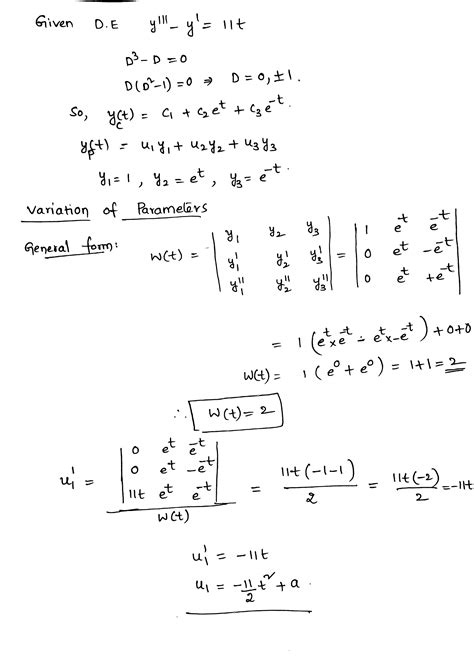 Given D.E y''' - y' = 11t
D³ - D = 0
D(D²-1) = 0 ⇒ D = 0, ±1.
So, y_c(t) = c₁ + c₂e^t + c₃e^-t.
y_p(t) = u₁y₁ + u₂y₂ + u₃y₃
y₁ = 1, y₂ = e^t, y₃ = e^-t.
Variation of Parameters
General form: W(t) = | y₁ y₂ y₃ | = | 1 e^t e^-t |
| y₁' y₂' y₃' | | 0 e^t -e^-t |
| y₁'' y₂'' y₃'' | | 0 e^t +e^-t |
= 1 (e^t x e^-t - e^t x -e^-t) + 0 + 0
W(t) = 1 (e⁰ + e⁰) = 1+1 = 2
∴ W(t) = 2
u₁' = | 0 e^t e^-t | / W(t) = 11t(-1-1) / 2 = 11t(-2) / 2 = -11t
| 0 e^t -e^-t |
| 11t e^t e^-t |
u₁' = -11t
u₁ = -11/2 t² + a.